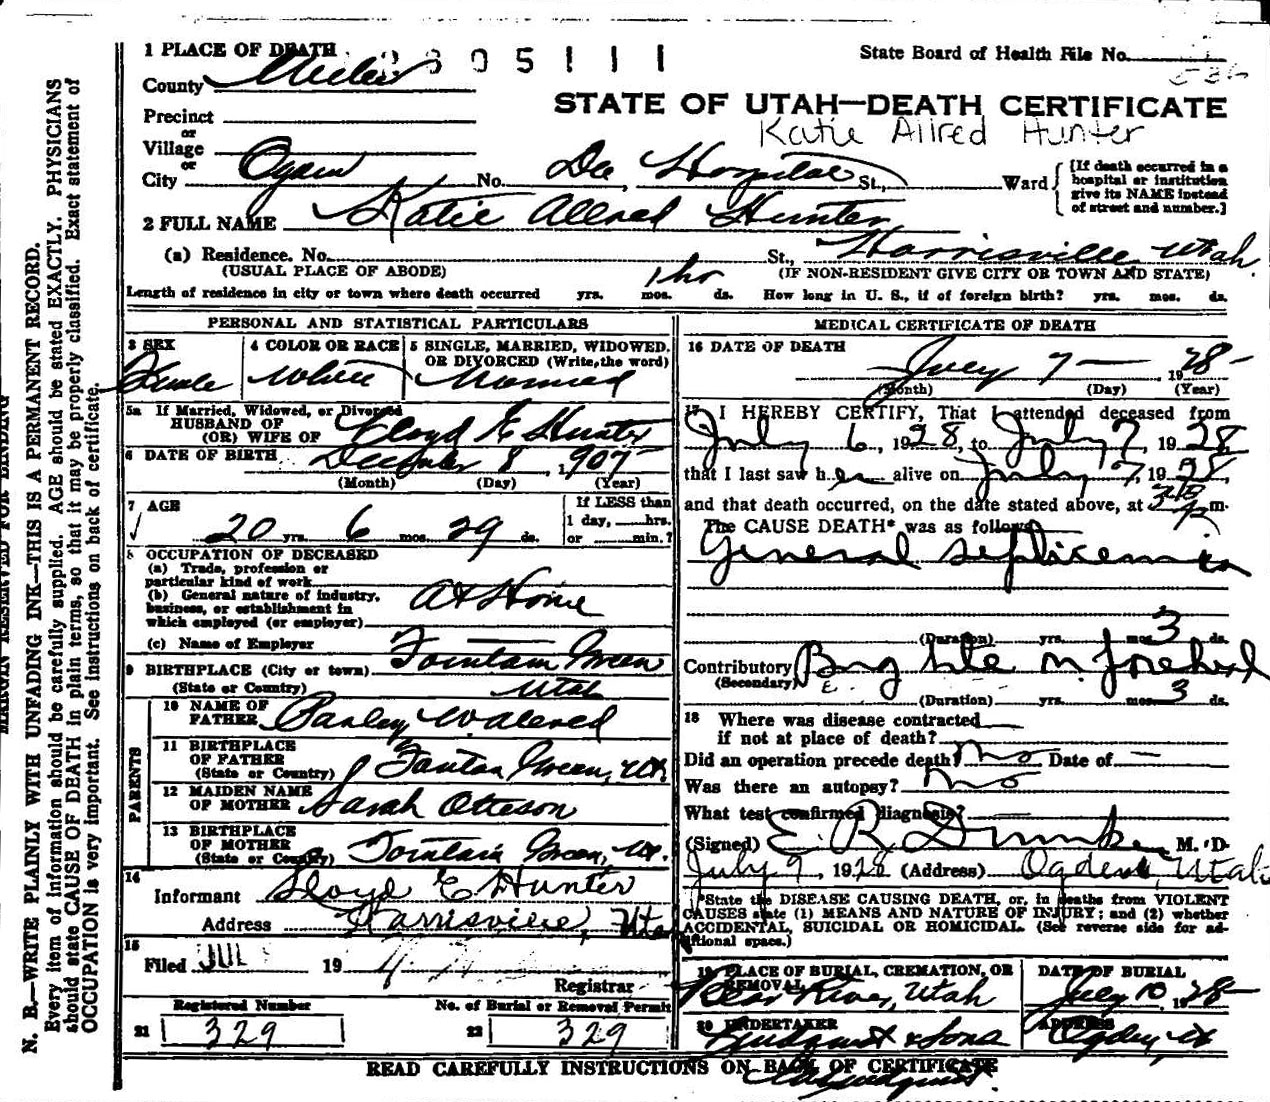 1 PLACE OF DEATH 2805111 State Board of Health File No.
County Weber
STATE OF UTAH—DEATH CERTIFICATE
Precinct
Katie Allred Hunter
or
Village
or
City Ogden No. Dee Hospital St., Ward
[If death occurred in a
hospital or institution
give its NAME instead
of street and number.]
2 FULL NAME Katie Allred Hunter
(a) Residence. No. St., Harrisville Utah
(USUAL PLACE OF ABODE) (IF NON-RESIDENT GIVE CITY OR TOWN AND STATE)
Length of residence in city or town where death occurred yrs. mos. 1 hr ds. How long in U. S., if of foreign birth? yrs. mos. ds.
PERSONAL AND STATISTICAL PARTICULARS
3 SEX 4 COLOR OR RACE 5 SINGLE, MARRIED, WIDOWED,
OR DIVORCED (Write the word)
Female White Married
5a If Married, Widowed, or Divorced
HUSBAND OF
(OR) WIFE OF Lloyd E Hunter
6 DATE OF BIRTH December 8, 1907
(Month) (Day) (Year)
7 AGE If LESS than
20 yrs. 6 mos. 29 ds. 1 day, hrs.
or min.?
8 OCCUPATION OF DECEASED
(a) Trade, profession or
particular kind of work
(b) General nature of industry,
business, or establishment in
which employed (or employer) At Home
(c) Name of Employer
9 BIRTHPLACE (City or town) Fountain Green
(State or Country) Utah
PARENTS
10 NAME OF
FATHER Parley W. Allred
11 BIRTHPLACE
OF FATHER
(State or Country) Fountan Green, Ut.
12 MAIDEN NAME
OF MOTHER Sarah Otteson
13 BIRTHPLACE
OF MOTHER
(State or Country) Fountain Green, Ut.
14
Informant Lloyd E Hunter
Address Harrisville, Utah
15
Filed JUL 19
Registrar
Registered Number No. of Burial or Removal Permit
21 329 22 329
MEDICAL CERTIFICATE OF DEATH
16 DATE OF DEATH
July 7 — 1928
(Month) (Day) (Year)
17 I HEREBY CERTIFY, That I attended deceased from
July 6, 1928, to July 7, 1928
that I last saw her alive on July 7, 1928
and that death occurred, on the date stated above, at m.
The CAUSE DEATH* was as follows
General septicemia
(Duration) yrs. mos. 3 ds.
Contributory Bug bite on forehead
(Secondary)
(Duration) yrs. mos. 3 ds.
18 Where was disease contracted
if not at place of death?
Did an operation precede death? No Date of —
Was there an autopsy? No
What test confirmed diagnosis?
(Signed) E. R. M. D.
July 9 1928 (Address) Ogden, Utah
*State the DISEASE CAUSING DEATH, or, in deaths from VIOLENT
CAUSES state (1) MEANS AND NATURE OF INJURY; and (2) whether
ACCIDENTAL, SUICIDAL OR HOMICIDAL. (See reverse side for ad-
ditional space.)
19 PLACE OF BURIAL, CREMATION, OR
REMOVAL DATE OF BURIAL
Bear River, Utah July 10, 1928
20 UNDERTAKER ADDRESS
Lindquist & Sons Ogden, Ut
READ CAREFULLY INSTRUCTIONS ON BACK OF CERTIFICATE
MARGIN RESERVED FOR BINDING
N. B.—WRITE PLAINLY WITH UNFADING INK—THIS IS A PERMANENT RECORD.
Every item of information should be carefully supplied. AGE should be stated EXACTLY. PHYSICIANS
should state CAUSE OF DEATH in plain terms, so that it may be properly classified. Exact statement of
OCCUPATION is very important. See instructions on back of certificate.